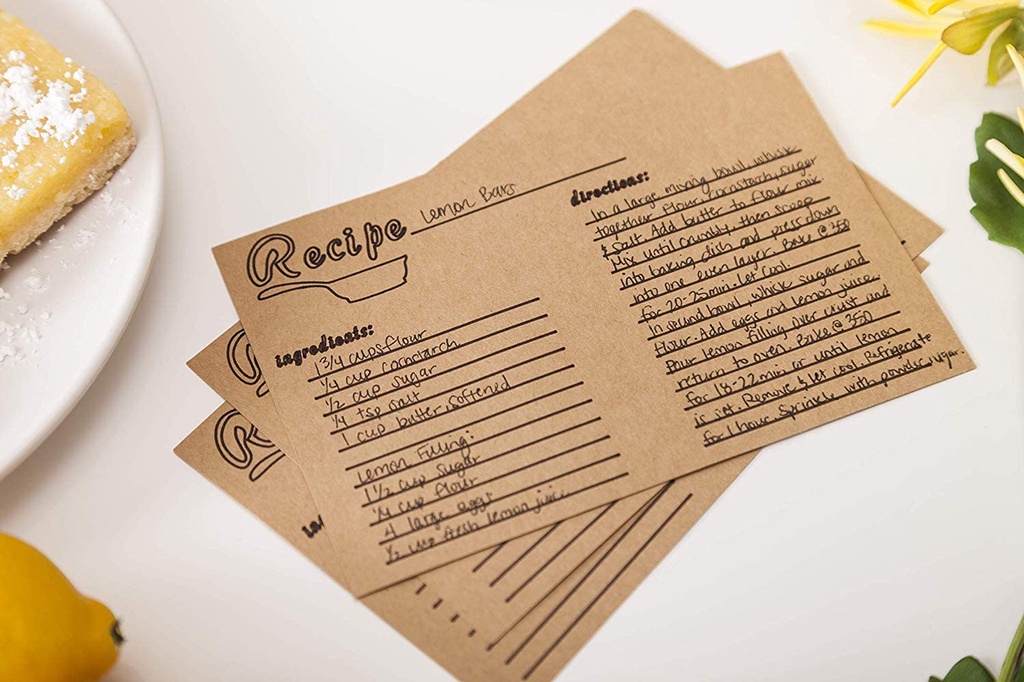 Recipe Lemon Bars
ingredients:
1 3/4 cups flour
1/4 cup cornstarch
1/2 cup sugar
1/4 tsp salt
1 cup butter, softened
Lemon Filling:
1 1/2 cup sugar
1/4 cup flour
4 large eggs
1/2 cup fresh lemon juice
directions:
In a large mixing bowl, whisk
together flour, cornstarch, sugar
& salt. Add butter to flour mix.
Mix until crumbly, then scoop
into baking dish and press down
into one even layer. Bake @ 350
for 20-25 min. Let cool.
In second bowl, whisk sugar and
flour. Add eggs and lemon juice.
Pour lemon filling over crust and
return to oven. Bake @ 350
for 18-22 min or until lemon
is set. Remove & let cool. Refrigerate
for 1 hour. Sprinkle with powder sugar.
R
Re